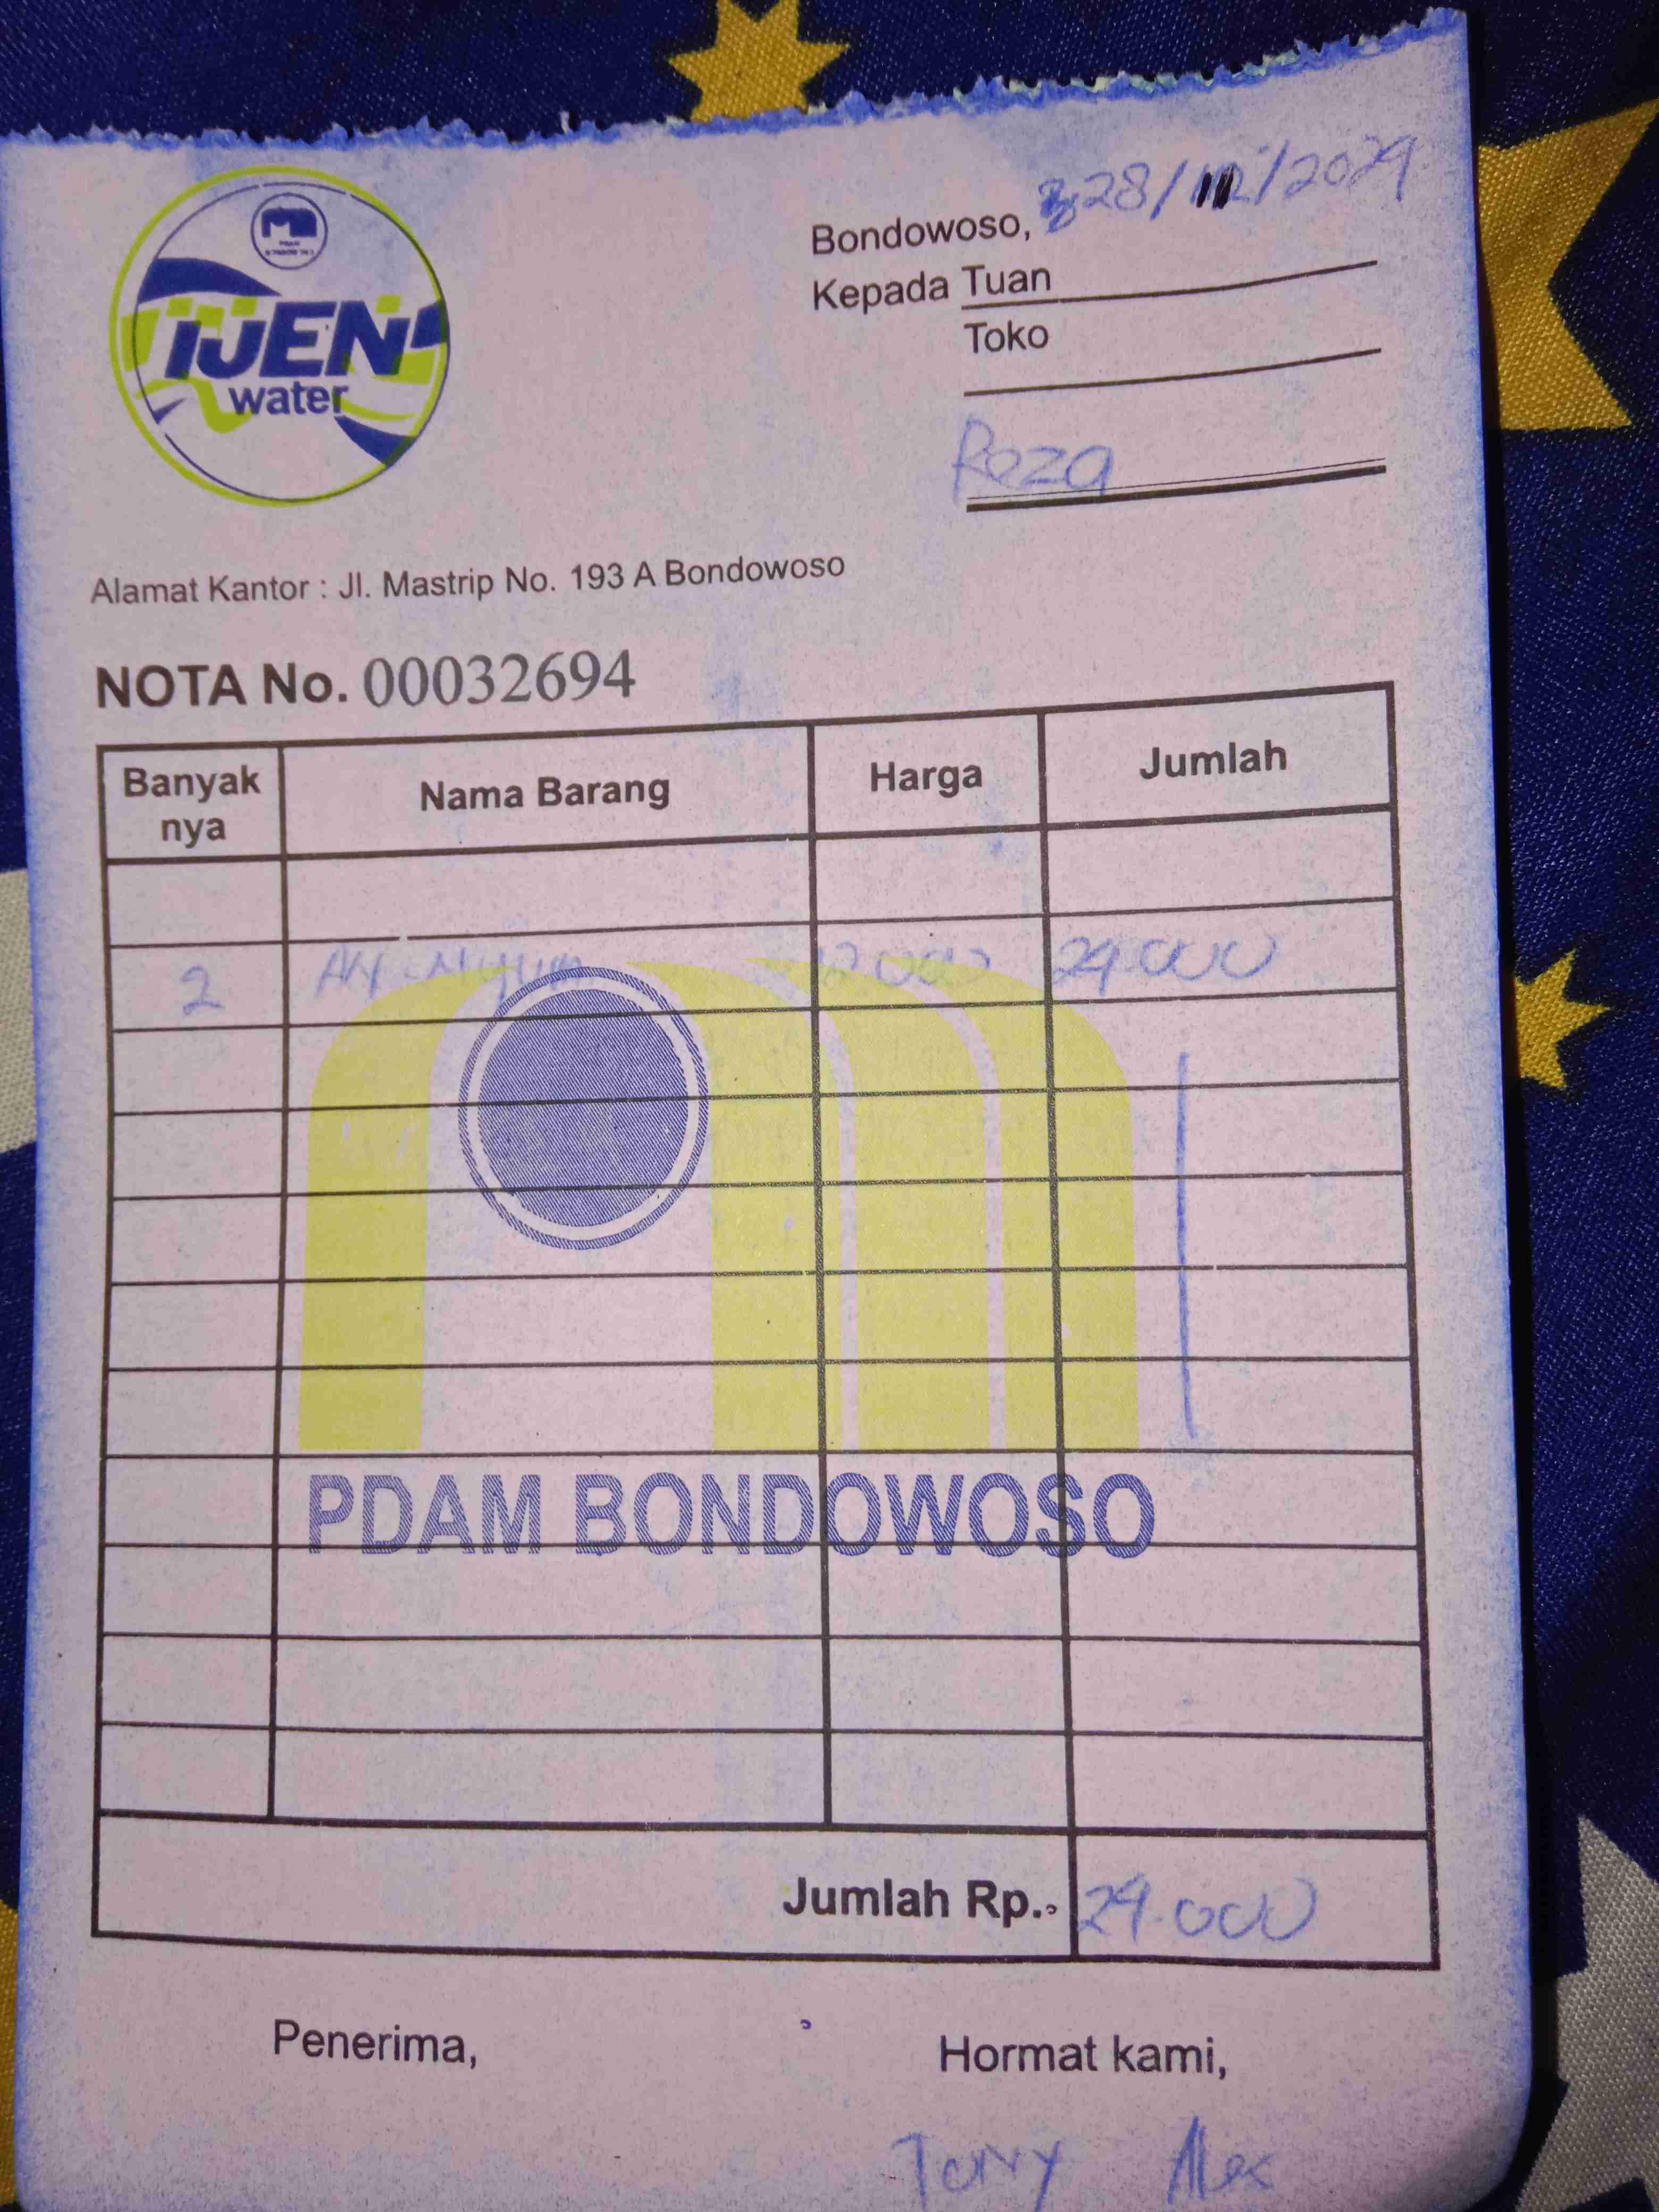 IJEN
water
Bondowoso, 28/12/2024
Kepada Tuan
Toko
Reza
Alamat Kantor : Jl. Mastrip No. 193 A Bondowoso
NOTA No. 00032694
Banyak nya Nama Barang Harga Jumlah
2 12.000 24.000
PDAM BONDOWOSO
Jumlah Rp. 24.000
Penerima, Hormat kami,
Tony Alex